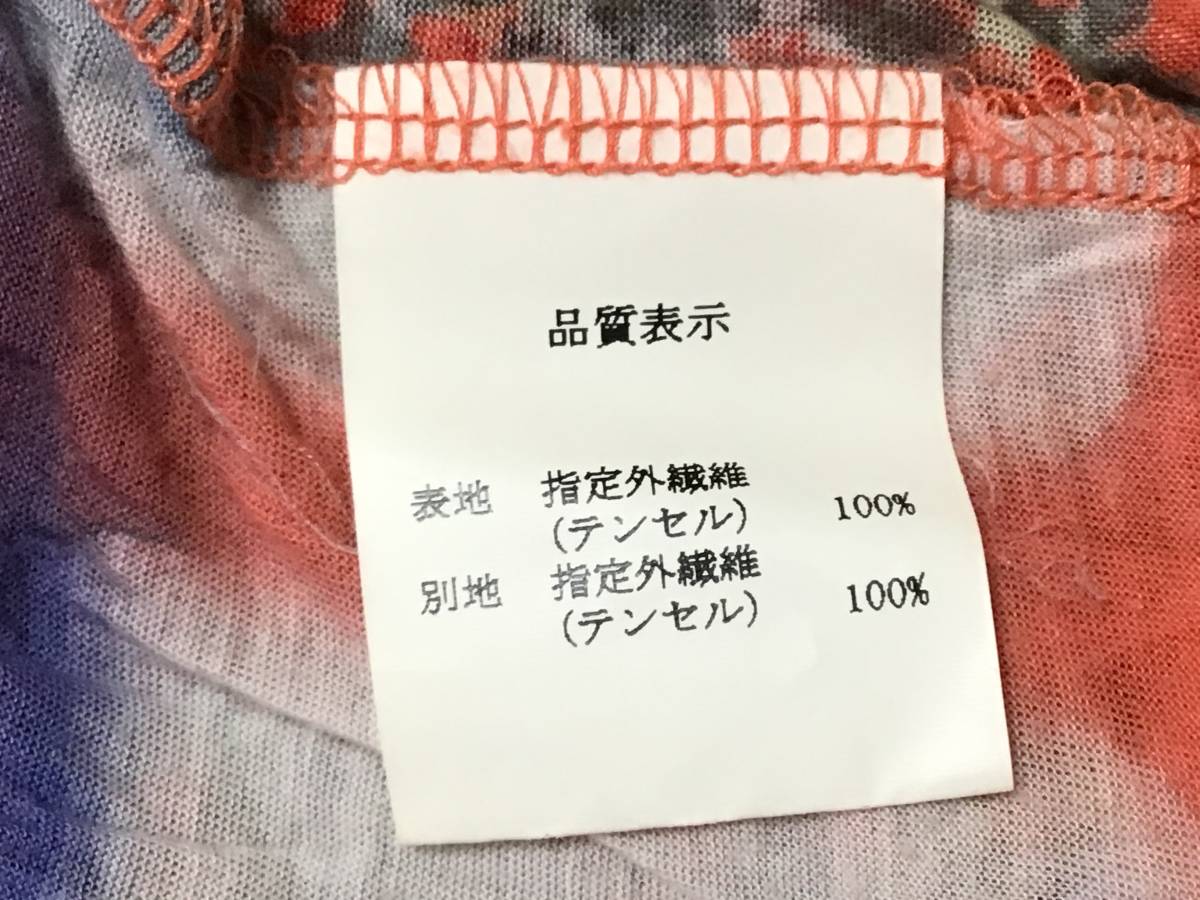 品質表示
表地 指定外繊維
(テンセル) 100%
別地 指定外繊維
(テンセル) 100%